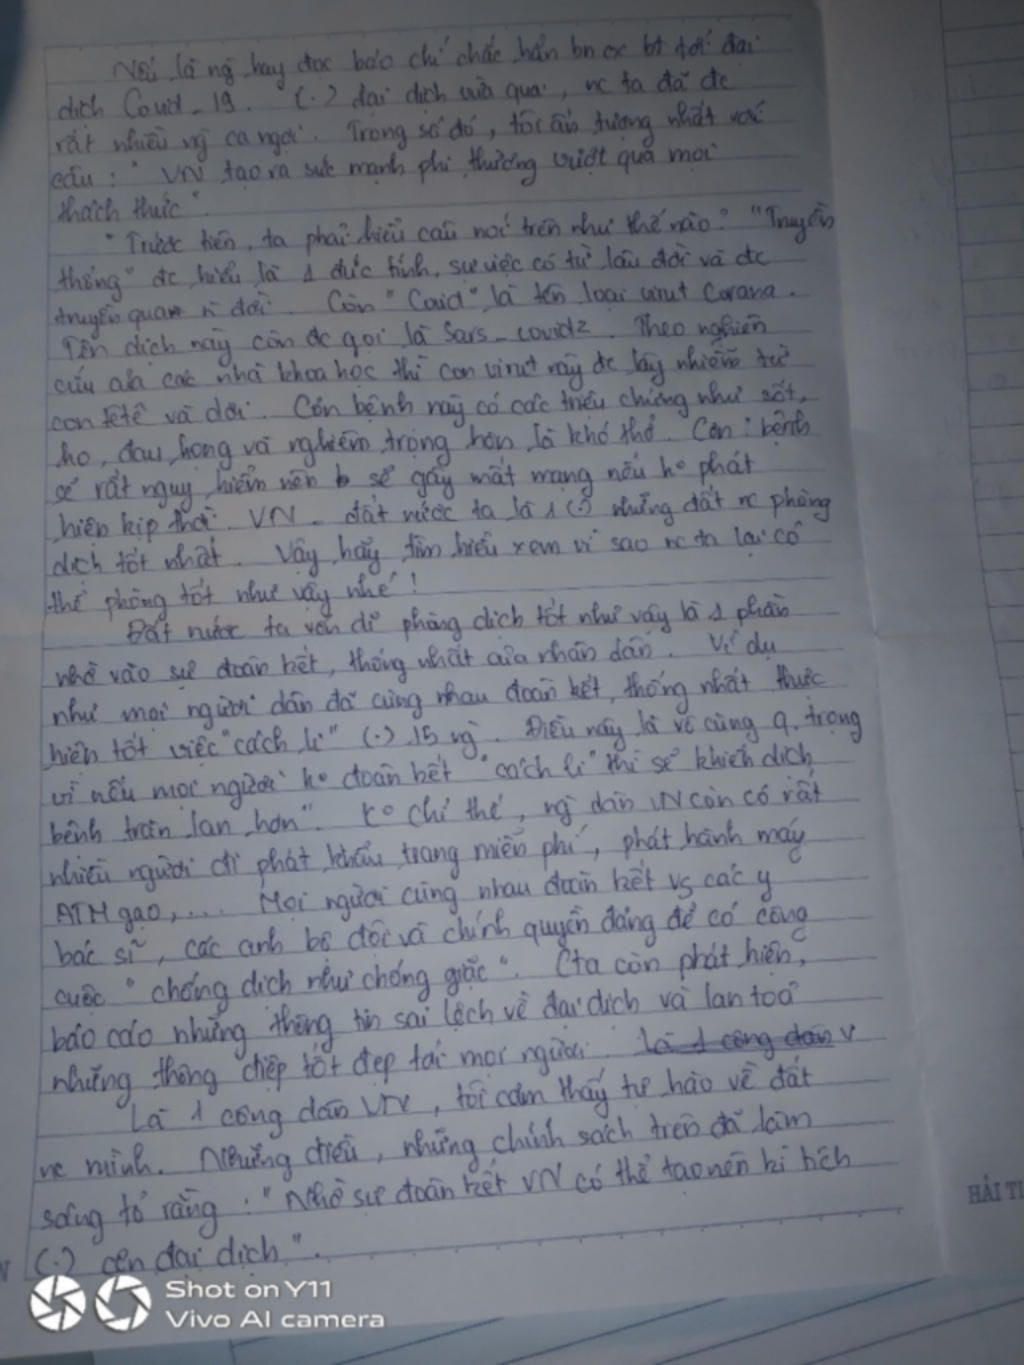 Nếu là ng hay đọc báo chí chắc hẳn bn cx bt tới đại
dịch Covid_19. (.) đại dịch vừa qua, nc ta đã đc
rất nhiều ng ca ngợi. Trong số đó, tôi ấn tượng nhất với
câu: "VN tạo ra sức mạnh phi thường vượt qua mọi
thách thức".
"Trước tiên, ta phải hiểu câu nói trên như thế nào? "Truyền
thống" đc hiểu là 1 đức tính, sự việc có từ lâu đời và đc
truyền qua n đời. Còn "Covid" là tên loại virut Corona.
Tên dịch này còn đc gọi là Sars_covid2. Theo nghiên
cứu của các nhà khoa học thì con virut này đc lây nhiễm từ
con têtê và dơi. Căn bệnh này có các triệu chứng như sốt,
ho, đau họng và nghiêm trọng hơn là khó thở. Căn bệnh
sẽ rất nguy hiểm nên sẽ gây mất mạng nếu ko phát
hiện kịp thời. VN - đất nước ta là 1 (.) những đất nc phòng
dịch tốt nhất. Vậy hãy tìm hiểu xem vì sao nc ta lại có
thể phòng tốt như vậy nhé!
Đất nước ta vốn dĩ phòng dịch tốt như vậy là 1 phần
nhờ vào sự đoàn kết, thống nhất của nhân dân. Ví dụ
như mọi người dân đã cùng nhau đoàn kết, thống nhất thực
hiện tốt việc "cách li" (.) 15 ng. Điều này là vô cùng q. trọng
vì nếu mọi người ko đoàn kết "cách li" thì sẽ khiến dịch
bệnh tràn lan hơn". Ko chỉ thế, ng dân VN còn có rất
nhiều người đi phát khẩu trang miễn phí, phát hành máy
ATM gạo,... Mọi người cùng nhau đoàn kết vs các y
bác sĩ, các anh bộ đội và chính quyền đảng để có công
cuộc "chống dịch như chống giặc". Cta còn phát hiện,
báo cáo những thông tin sai lệch về đại dịch và lan toả
những thông điệp tốt đẹp tới mọi người. là 1 công dân V
Là 1 công dân VN, tôi cảm thấy tự hào về đất
nc mình. Những điều, những chính sách trên đã làm
sáng tỏ rằng: "Nhờ sự đoàn kết VN có thể tạo nên kì tích
(.) cơn đại dịch".
HẢI T
Shot on Y11
Vivo AI camera